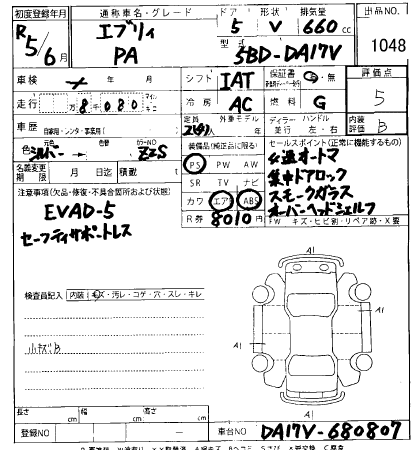 初度登録年月 通称車名・グレード ドア 形状 排気量 出品NO.
R5/6月 エブリィ 5 V 660cc
PA 型式 5BD-DA17V 1048
車検 年 月 シフト IAT 保証書 有・無 評価点
走行 万 8千 080 マイル キロ 冷房 AC 燃料 G 5
車歴 自家用・レンタ・事業用( ) 定員 外装モデル 年 ディーラー 並行 ハンドル 左・右 内装評価 B
色 シルバー 元色 カラーNO Z2S 装備品(純正品に限る) セールスポイント(正常に機能するもの)
名義変更期限 月 日迄 積載 t PS PW AW 4速オートマ
注意事項(欠品・修復・不具合箇所および状態) SR TV ナビ 集中ドアロック
EVAD-5 カワ エアB ABS スモークガラス
セーフティサポートレス R券 8010円 オーバーヘッドシェルフ
FW キズ・ヒビ別・リペア跡・X要
検査員記入 内装:キズ・汚レ・コゲ・穴・スレ・キレ
A1
小キズB
A1 A1
A1
長さ cm 幅 cm 高さ cm
登録NO 車台NO DA17V-680807